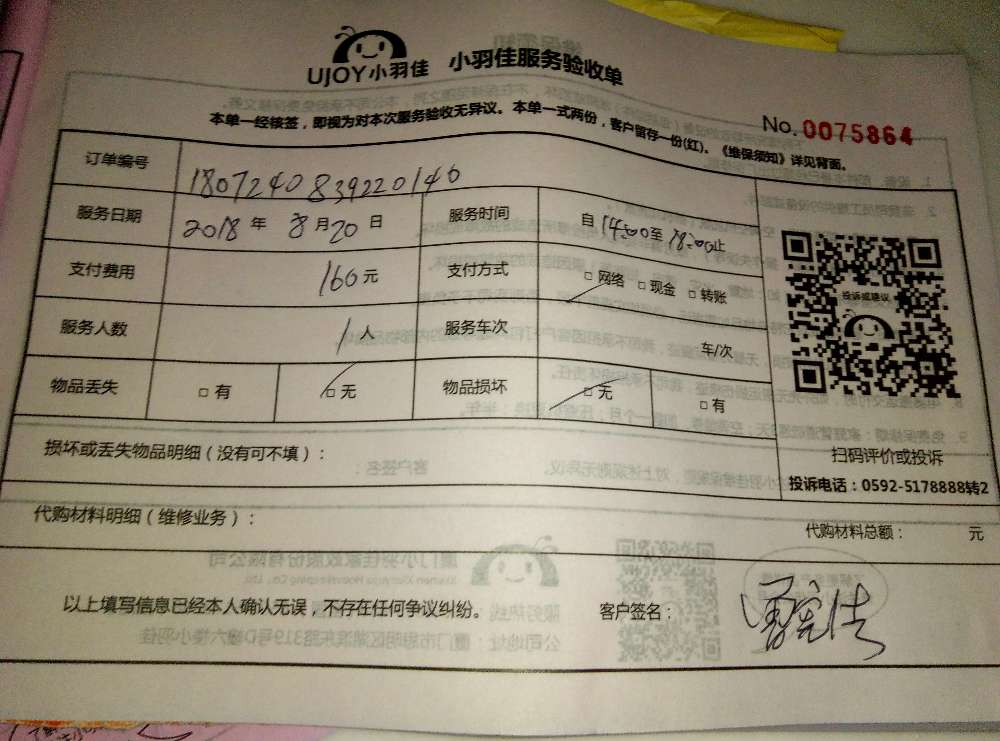 UJOY小羽佳 小羽佳服务验收单
本单一经核签，即视为对本次服务验收无异议。本单一式两份，客户留存一份(红)。《维保须知》详见背面。
No. 0075864
订单编号 1807240839220140
服务日期 2018 年 8 月 20 日 服务时间 自 14:00 至 18:00 止
支付费用 160 元 支付方式 □ 网络 □ 现金 □ 转账
服务人数 1 人 服务车次 车/次
物品丢失 □ 有 □ 无 物品损坏 □ 无 □ 有
投诉或建议
扫码评价或投诉
投诉电话：0592-5178888转2
损坏或丢失物品明细（没有可不填）：
代购材料明细（维修业务）： 代购材料总额： 元
以上填写信息已经本人确认无误，不存在任何争议纠纷。 客户签名：